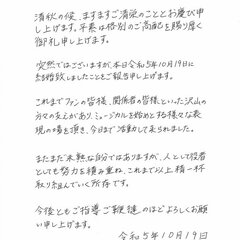 清秋の候、ますますご清栄のこととお慶び申
し上げます。平素は格別のご高配を賜り厚く
御礼申し上げます。
突然ではございますが、本日令和5年10月19日に
結婚致しましたことをご報告申し上げます。
これまでファンの皆様、関係者の皆様といった沢山の
方々の支えがあり、ミュージカルを始めとする様々な表
現の場を頂き、今日まで活動して来られました。
まだまだ未熟な自分ではありますが、人として役者
としても努力を積み重ね、これまで以上精一杯
取り組んでいく所存です。
今後ともご指導ご鞭撻のほどよろしくお願
い申し上げます。
令和5年10月19日